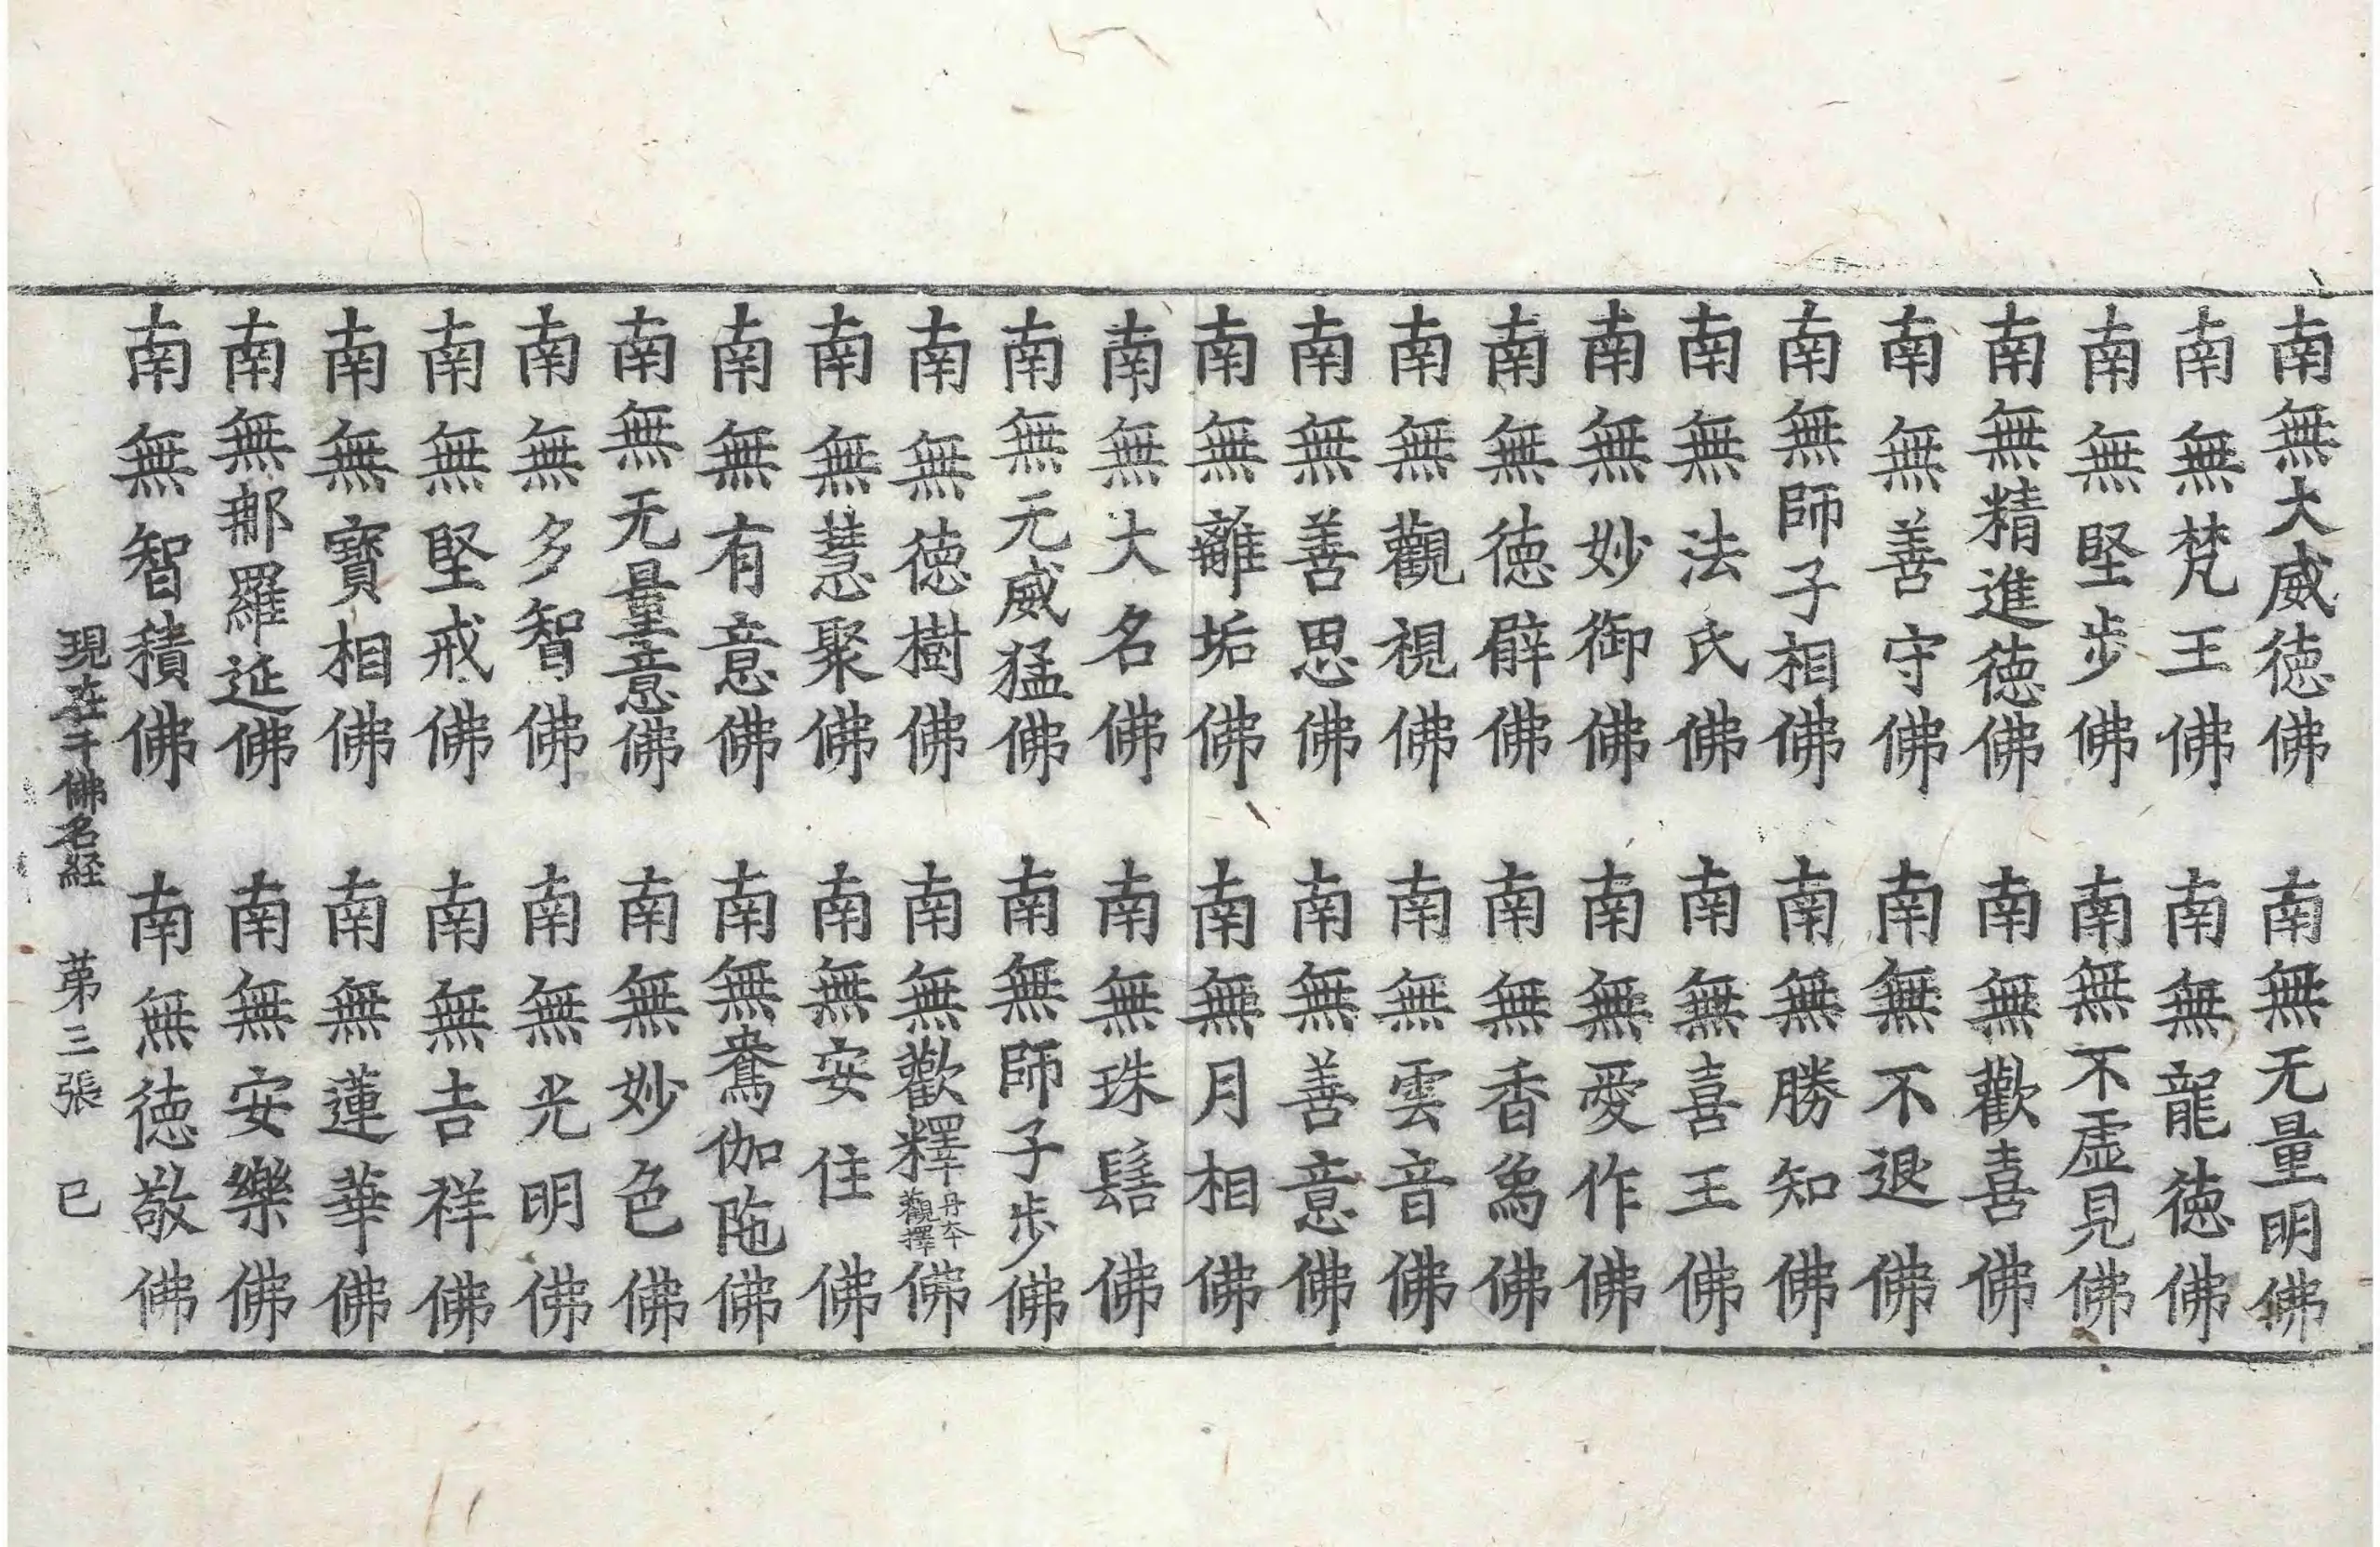 南無大威德佛　南無无量明佛
南無梵王佛　南無龍德佛
南無堅步佛　南無不虛見佛
南無精進德佛　南無歡喜佛
南無善守佛　南無不退佛
南無師子相佛　南無勝知佛
南無法氏佛　南無喜王佛
南無妙御佛　南無愛作佛
南無德臂佛　南無香象佛
南無觀視佛　南無雲音佛
南無善思佛　南無善意佛
南無離垢佛　南無月相佛
南無大名佛　南無珠髻佛
南無无威猛佛　南無師子步佛
南無德樹佛　南無歡釋丹本觀擇佛
南無慧聚佛　南無安住佛
南無有意佛　南無鴦伽陁佛
南無无量意佛　南無妙色佛
南無多智佛　南無光明佛
南無堅戒佛　南無吉祥佛
南無寶相佛　南無蓮華佛
南無那羅延佛　南無安樂佛
南無智積佛　南無德敬佛
現在千佛名経　第三張　已